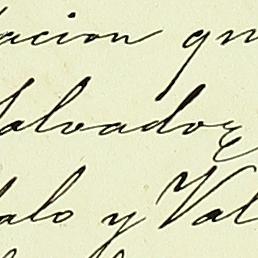 acion qu
Salvador
alo y Val